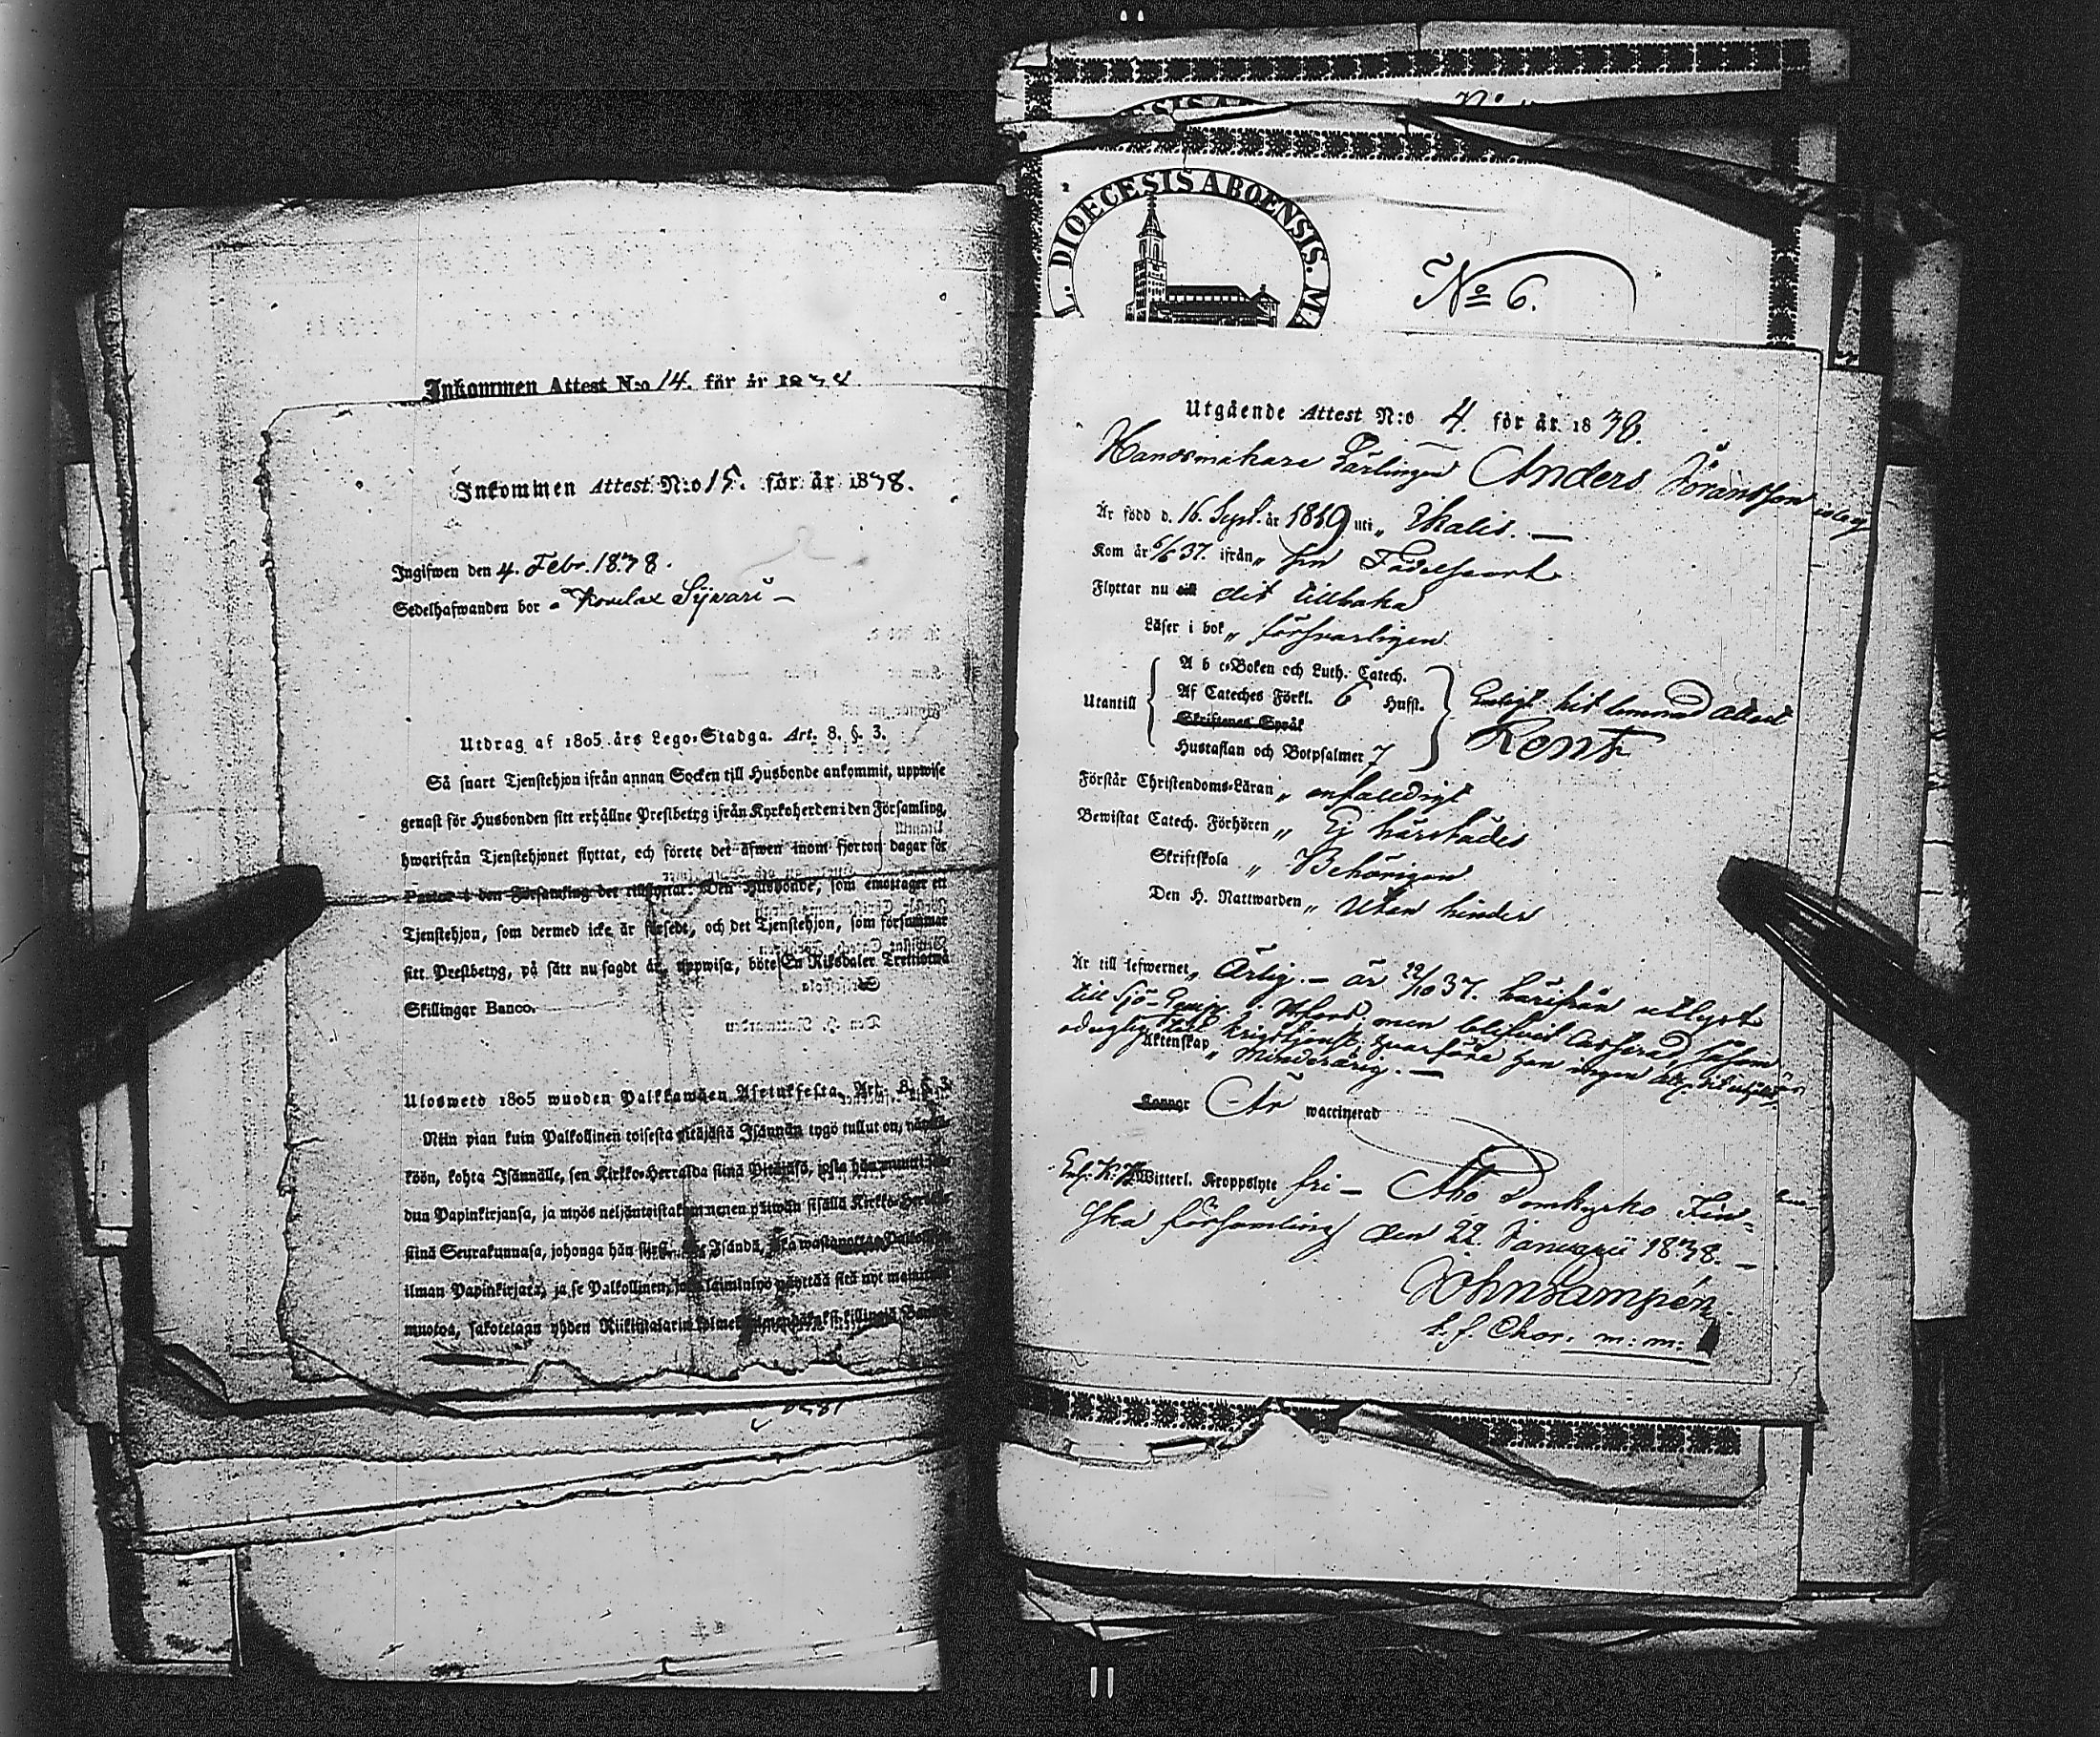 Inkommen Attest N:o 14. för år 1838.
Inkommen Attest N:o 15. för år 1838.
Ingifwen den 4. Febr. 1838.
Sedelhafwanden bor å
Utdrag af 1805 års Lego-Stadga. Art. 8. §. 3.
Så snart Tjenstehjon ifrån annan Socken till Husbonde ankommit, uppwise
genast för Husbonden sitt erhållne Prestbetyg ifrån Kyrkoherden i den Församling,
hwarifrån Tjenstehjonet flyttat, och förete det äfwen inom fjorton dagar för
Pastor i den Församling det tillflyttat. Den Husbonde, som emottager ett
Tjenstehjon, som dermed icke är försedt, och det Tjenstehjon, som försummar
sitt Prestbetyg, på sätt nu sagdt är, uppwisa, böte En Riksdaler Trettiotwå
Skillingar Banco.
Ulosweto 1805 wuoden Palkkawäen Asetuksesta, Art. 8. §. 3.
Niin pian kuin Palkollinen toisesta pitäjästä Isännän tygö tullut on,
köön, kohta Isännälle, sen Kirkko-Herralda siinä Pitäjäsä, josta hän muutti
dun Papinkirjansa, ja myös neljäntoistakymmenen päiwän sisällä Kirkko-Herralle
siinä Seurakunnasa, johonga hän Isändä, joka wastanottaa Palkollisen
ilman Papinkirjata, ja se Palkollinen, joka laiminlyö näyttää sitä nyt mainitulla
muotoa, sakotetaan yhden Riikintalarin
L. DIOECESIS ABOENSIS. MA
No 6.
Utgående Attest N:o 4 för år 1838.
Handsmakare Lärlingen Anders Göransson
Är född d. 16. Sept. år 1819 uti „ Ikalis. —
Kom år 6/6 37. ifrån „ sin Födelseort
Flyttar nu till dit tillbaka
Läser i bok „ försvarligen
Utantill
A b c-Boken och Luth. Catech.
Af Cateches Förkl. 6 Hufst.
Skriftenes Språk
Hustaflan och Botpsalmer 7
Enligt hit lemnad attest
Rent
Förstår Christendoms-Läran „ enfaldigt
Bewistat Catech. Förhören „ Ej härstädes
Skriftskola „ Behörigen
Den H. Nattwarden „ Utan hinder
Är till lefwernet „ Ärlig. — är 22/10 37. härifrån utlyst
till Sjö-Equip. i men blifvit Casserad, såsom
oduglig till krigstjenst, hvarföre han ingen
Äktenskap „ Minderårig. —
Koppor Är waccinerad
Witterl. Kroppslyte fri — Åbo Domkyrko Fin-
ska församling den 22. Januarii 1838. —
Joh. Lampén.
t. f. m. m.